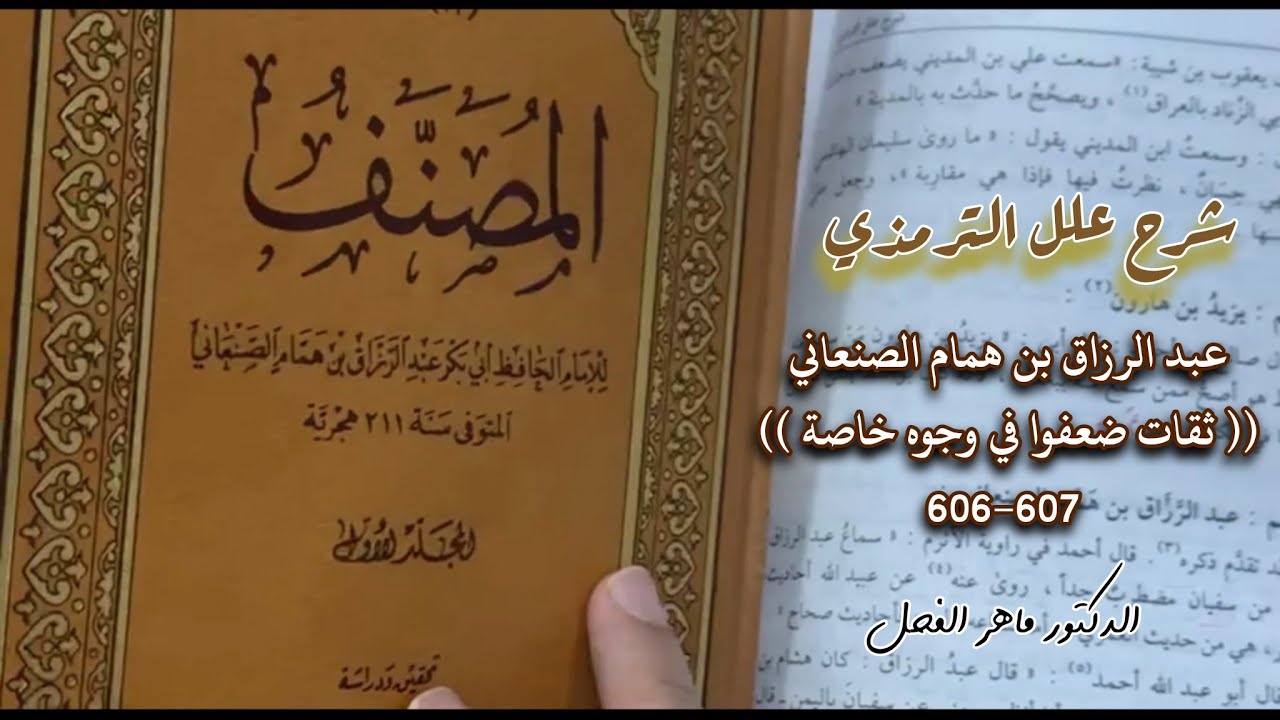 المُصَنَّف
للإمام الحافظ أبي بكر عبد الرزاق بن همام الصنعاني
المتوفى سنة ٢١١ هجرية
المجلد الأول
تحقيق ودراسة
يعقوب بن شيبة : «سمعت علي بن المديني يضعف
الزناد بالعراق(١) ، ويصححُ ما حدَّث به بالمدينة»
وسمعتُ ابن المديني يقول : « ما روىٰ سليمان الهاشمي
حِسَانٌ ، نظرتُ فيها فإذا هي مقاربة» ، وجعل
شرح علل الترمذي
: يزيدُ بن هارون(٢) :
عبد الرزاق بن همام الصنعاني
(( ثقات ضعفوا في وجوه خاصة ))
606-607
: عبد الرَّزَّاق بن
تقدَّم ذكره(٣) . قال أحمد في رواية الأثرم : « سماعُ عبد الرزاق
من سفيان مضطربٌ جداً ، روىٰ عنه(٤) عن عبيد الله أحاديث
هي من حديث أحاديث صحاح »
قال أبو عبد الله أحمد(٥) : « قال عبدُ الرزاق : كان هشام بن
سفيانَ باليمن ـ قال
الدكتور ماهر الفحل